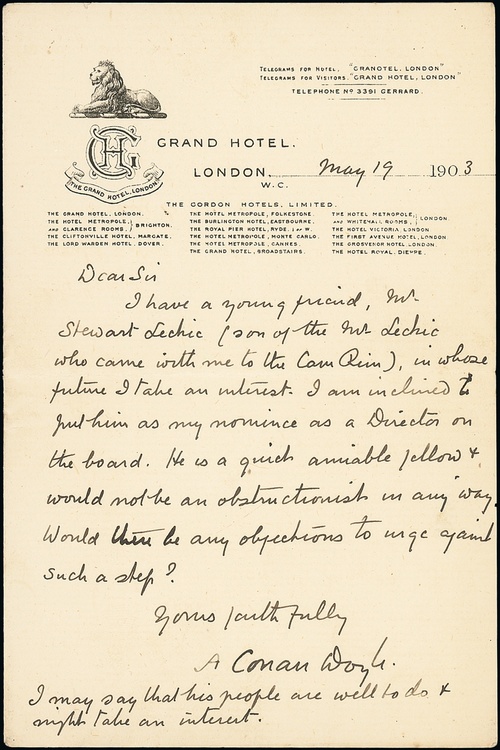 TELEGRAMS FOR HOTEL, "GRANOTEL, LONDON"
TELEGRAMS FOR VISITORS. "GRAND HOTEL, LONDON"
TELEPHONE Nº 3391 GERRARD.
GH
THE GRAND HOTEL, LONDON
GRAND HOTEL.
LONDON. May 19 1903
W.C.
THE GORDON HOTELS, LIMITED.
THE GRAND HOTEL, LONDON. THE HOTEL METROPOLE, FOLKESTONE. THE HOTEL METROPOLE,
THE HOTEL METROPOLE, THE BURLINGTON HOTEL, EASTBOURNE. AND WHITEHALL ROOMS, LONDON.
AND CLARENCE ROOMS, BRIGHTON. THE ROYAL PIER HOTEL, RYDE, I OF W. THE HOTEL VICTORIA, LONDON
THE CLIFTONVILLE HOTEL, MARGATE. THE HOTEL METROPOLE, MONTE CARLO. THE FIRST AVENUE HOTEL, LONDON.
THE LORD WARDEN HOTEL, DOVER. THE HOTEL METROPOLE, CANNES. THE GROSVENOR HOTEL, LONDON.
THE GRAND HOTEL, BROADSTAIRS. THE HOTEL ROYAL, DIEPPE.
Dear Sir
I have a young friend, Mr.
Stewart Leckie (son of the Mr Leckie
who came with me to the Cam Rim), in whose
future I take an interest. I am inclined to
put him as my nominee as a Director on
the board. He is a quick amiable fellow &
would not be an obstructionist in any way.
Would there be any objections to urge against
such a step?
Yours faithfully
A Conan Doyle.
I may say that his people are well to do &
might take an interest.